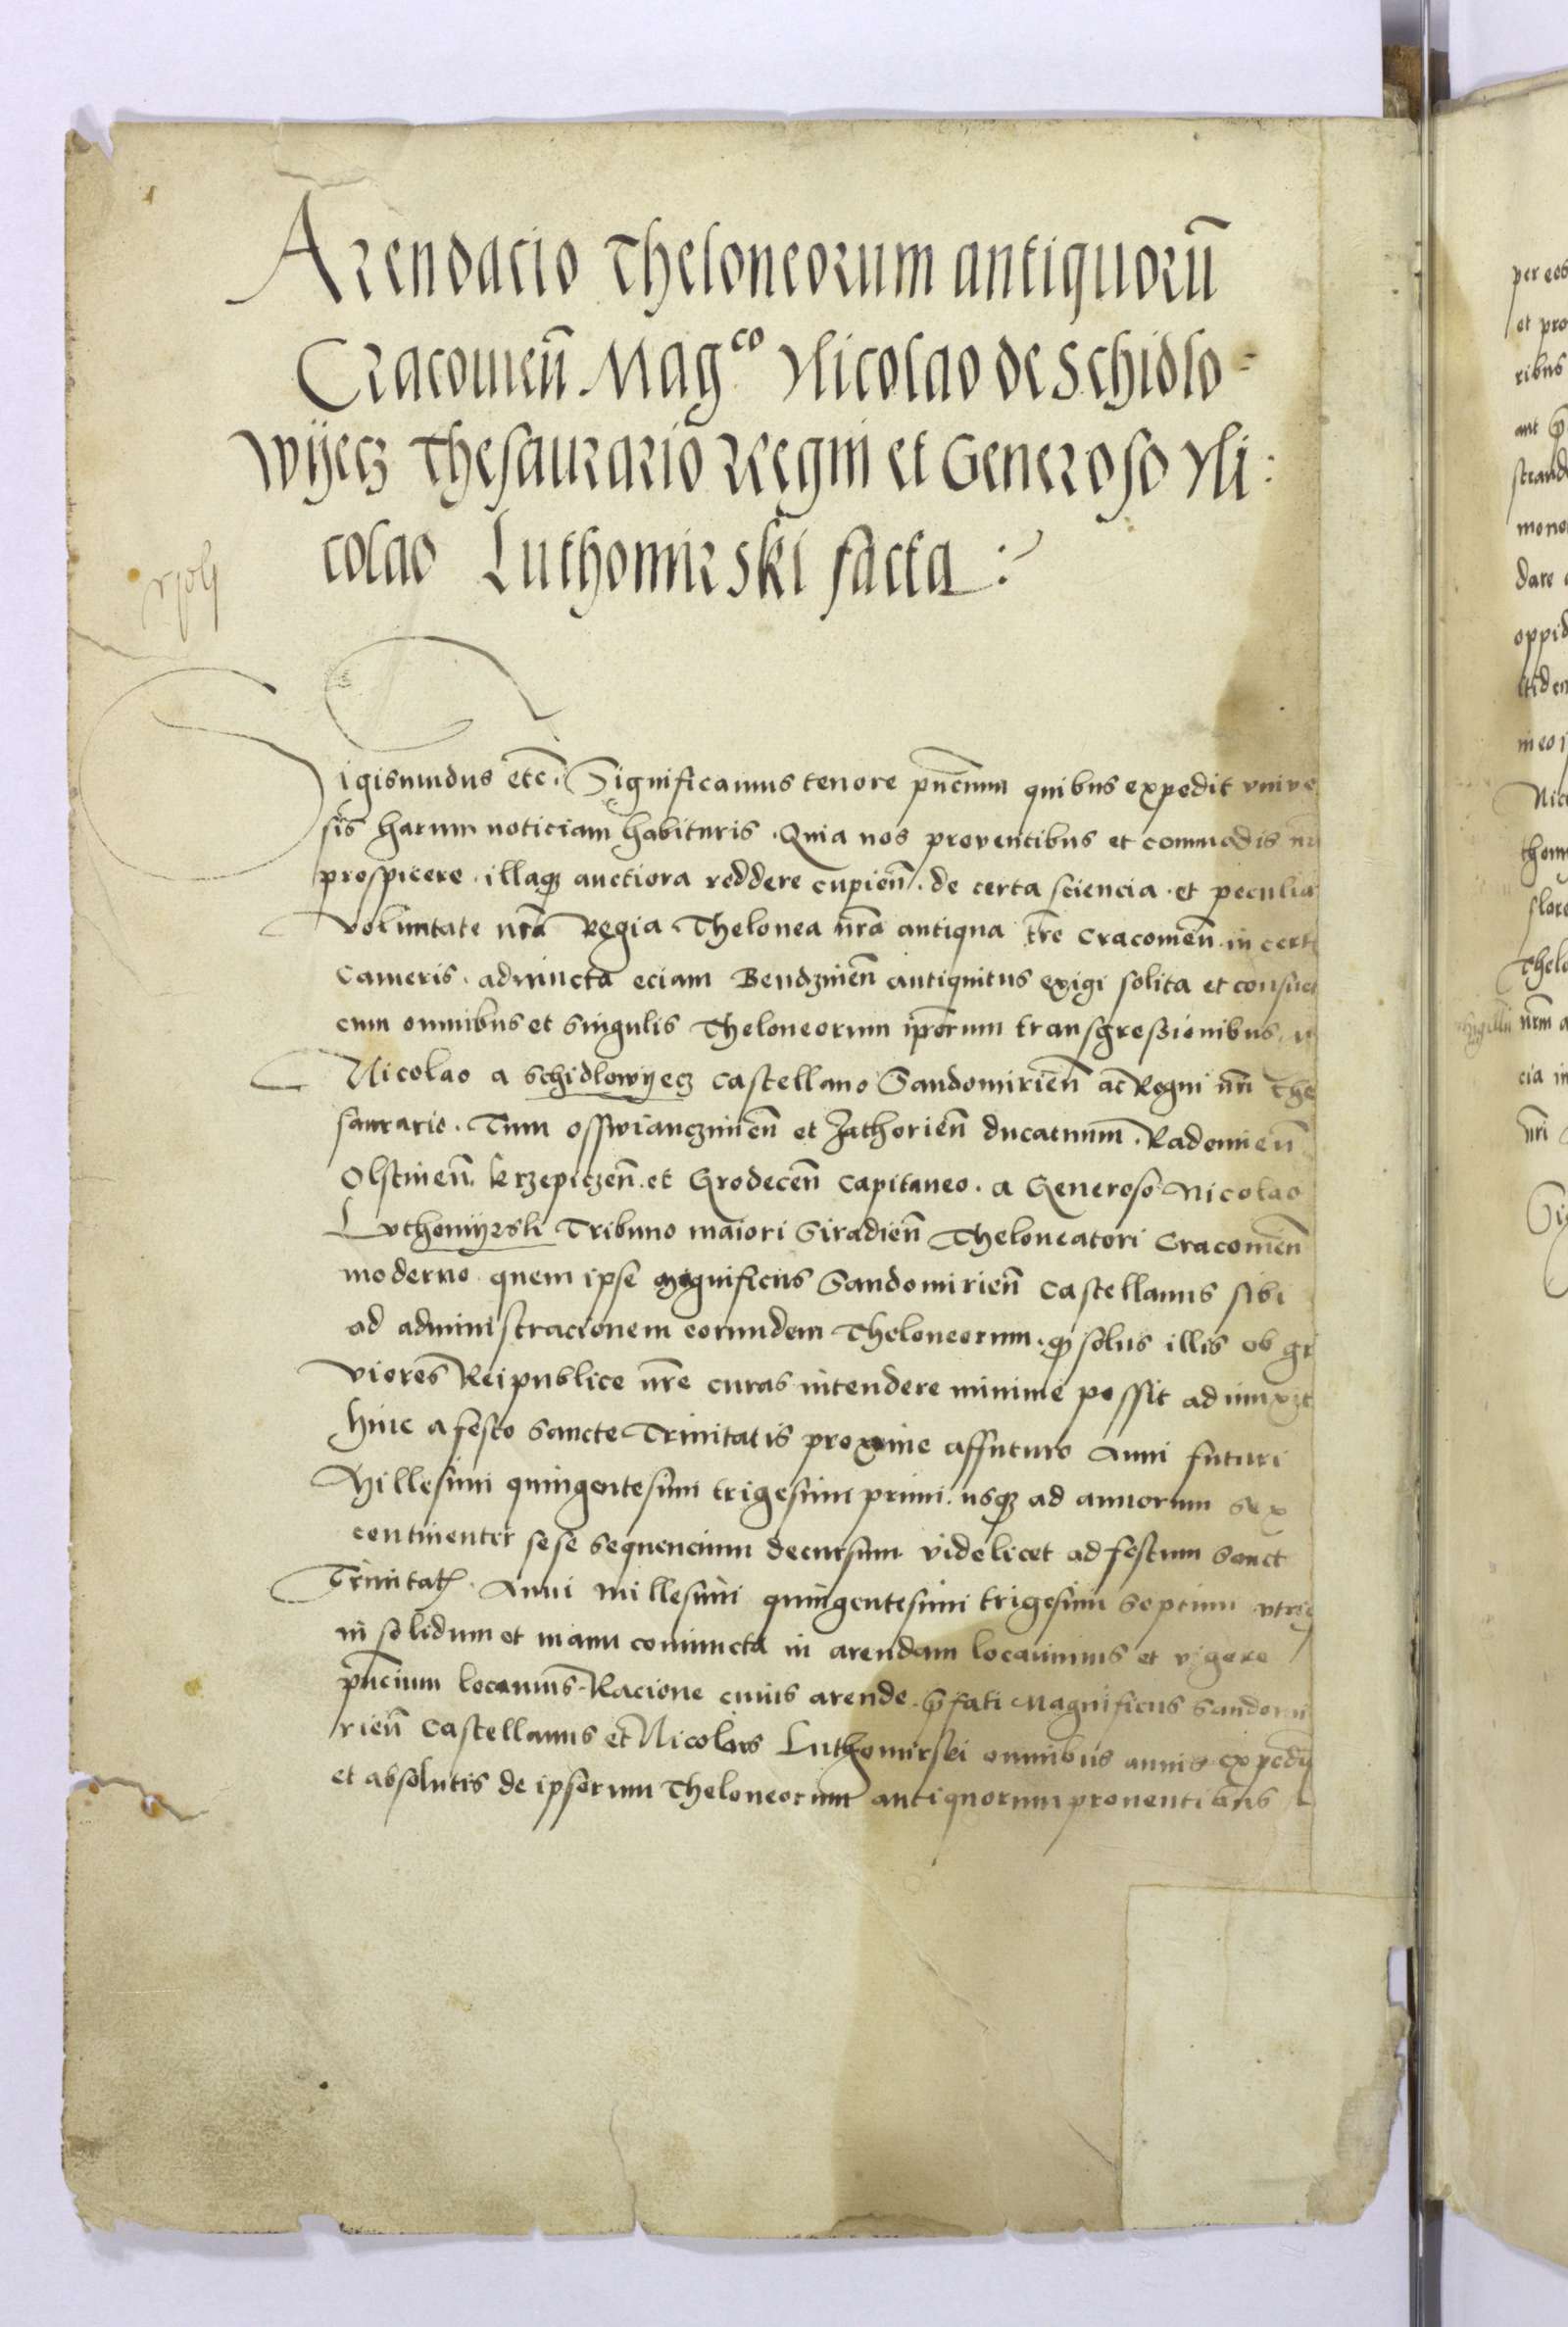 Arendacio Theloneorum antiquorū
Cracouien̄ Mag^co Nicolao de Schidlo-
wyecz Thesaurario Regni et Generoso Ni:
colao Luthomirski facta :
Sigismundus etc̄. Significamus tenore pn̄cium quibus expedit vniue
sis harum noticiam habituris. Quia nos prouentibus et commodis nr̄
prospicere illaqꝫ auctiora reddere cupien̄. de certa sciencia et peculia
voluntate nr̄a Regia Thelonea nr̄a antiqua tr̄e Cracouien̄. in certi
Cameris. adiuncta eciam Bendzinien̄ antiquitus exigi solita et consuet
cum omnibus et singulis Theloneorum ip̄orum transgressionibus.
Nicolao a Schidlowyecz Castellano Sandomirien̄ ac Regni nr̄i The
saurario. Tum Osswianczimen̄ et Zathorien̄ ducatuum. Radomien̄
Olstinen̄. krzepiczen̄. et Grodecen̄ Capitaneo. a Generoso Nicolao
Luthomyrski Tribuno maiori Siradien̄ Theloneatori Cracouien̄
moderno quem ipse magnificus Sandomirien̄ Castellanus sibi
ad administracionem eorundem Theloneorum. qꝫ solus illis ob gr
viores Reipublice nr̄e curas intendere minime possit adiunxit
hinc a festo Sancte Trinitatis proxime affuturo Anni futuri
Millesimi quingentesimi trigesimi primi. usqꝫ ad annorum sex
continenter sese sequencium decursum videlicet ad festum Sanct
Trinitatꝭ. Anni millesimi quingentesimi trigesimi septimi vtriqꝫ
in solidum et manu coniuncta in arendam locauimus et vigore
pn̄cium locamus. Racione cuius arende p̄fati Magnificus Sandomi
rien̄ Castellanus et Nicolaus Luthomirski omnibus annis expedi
et absolutis de ipsorum Theloneorum antiquorum prouentibus